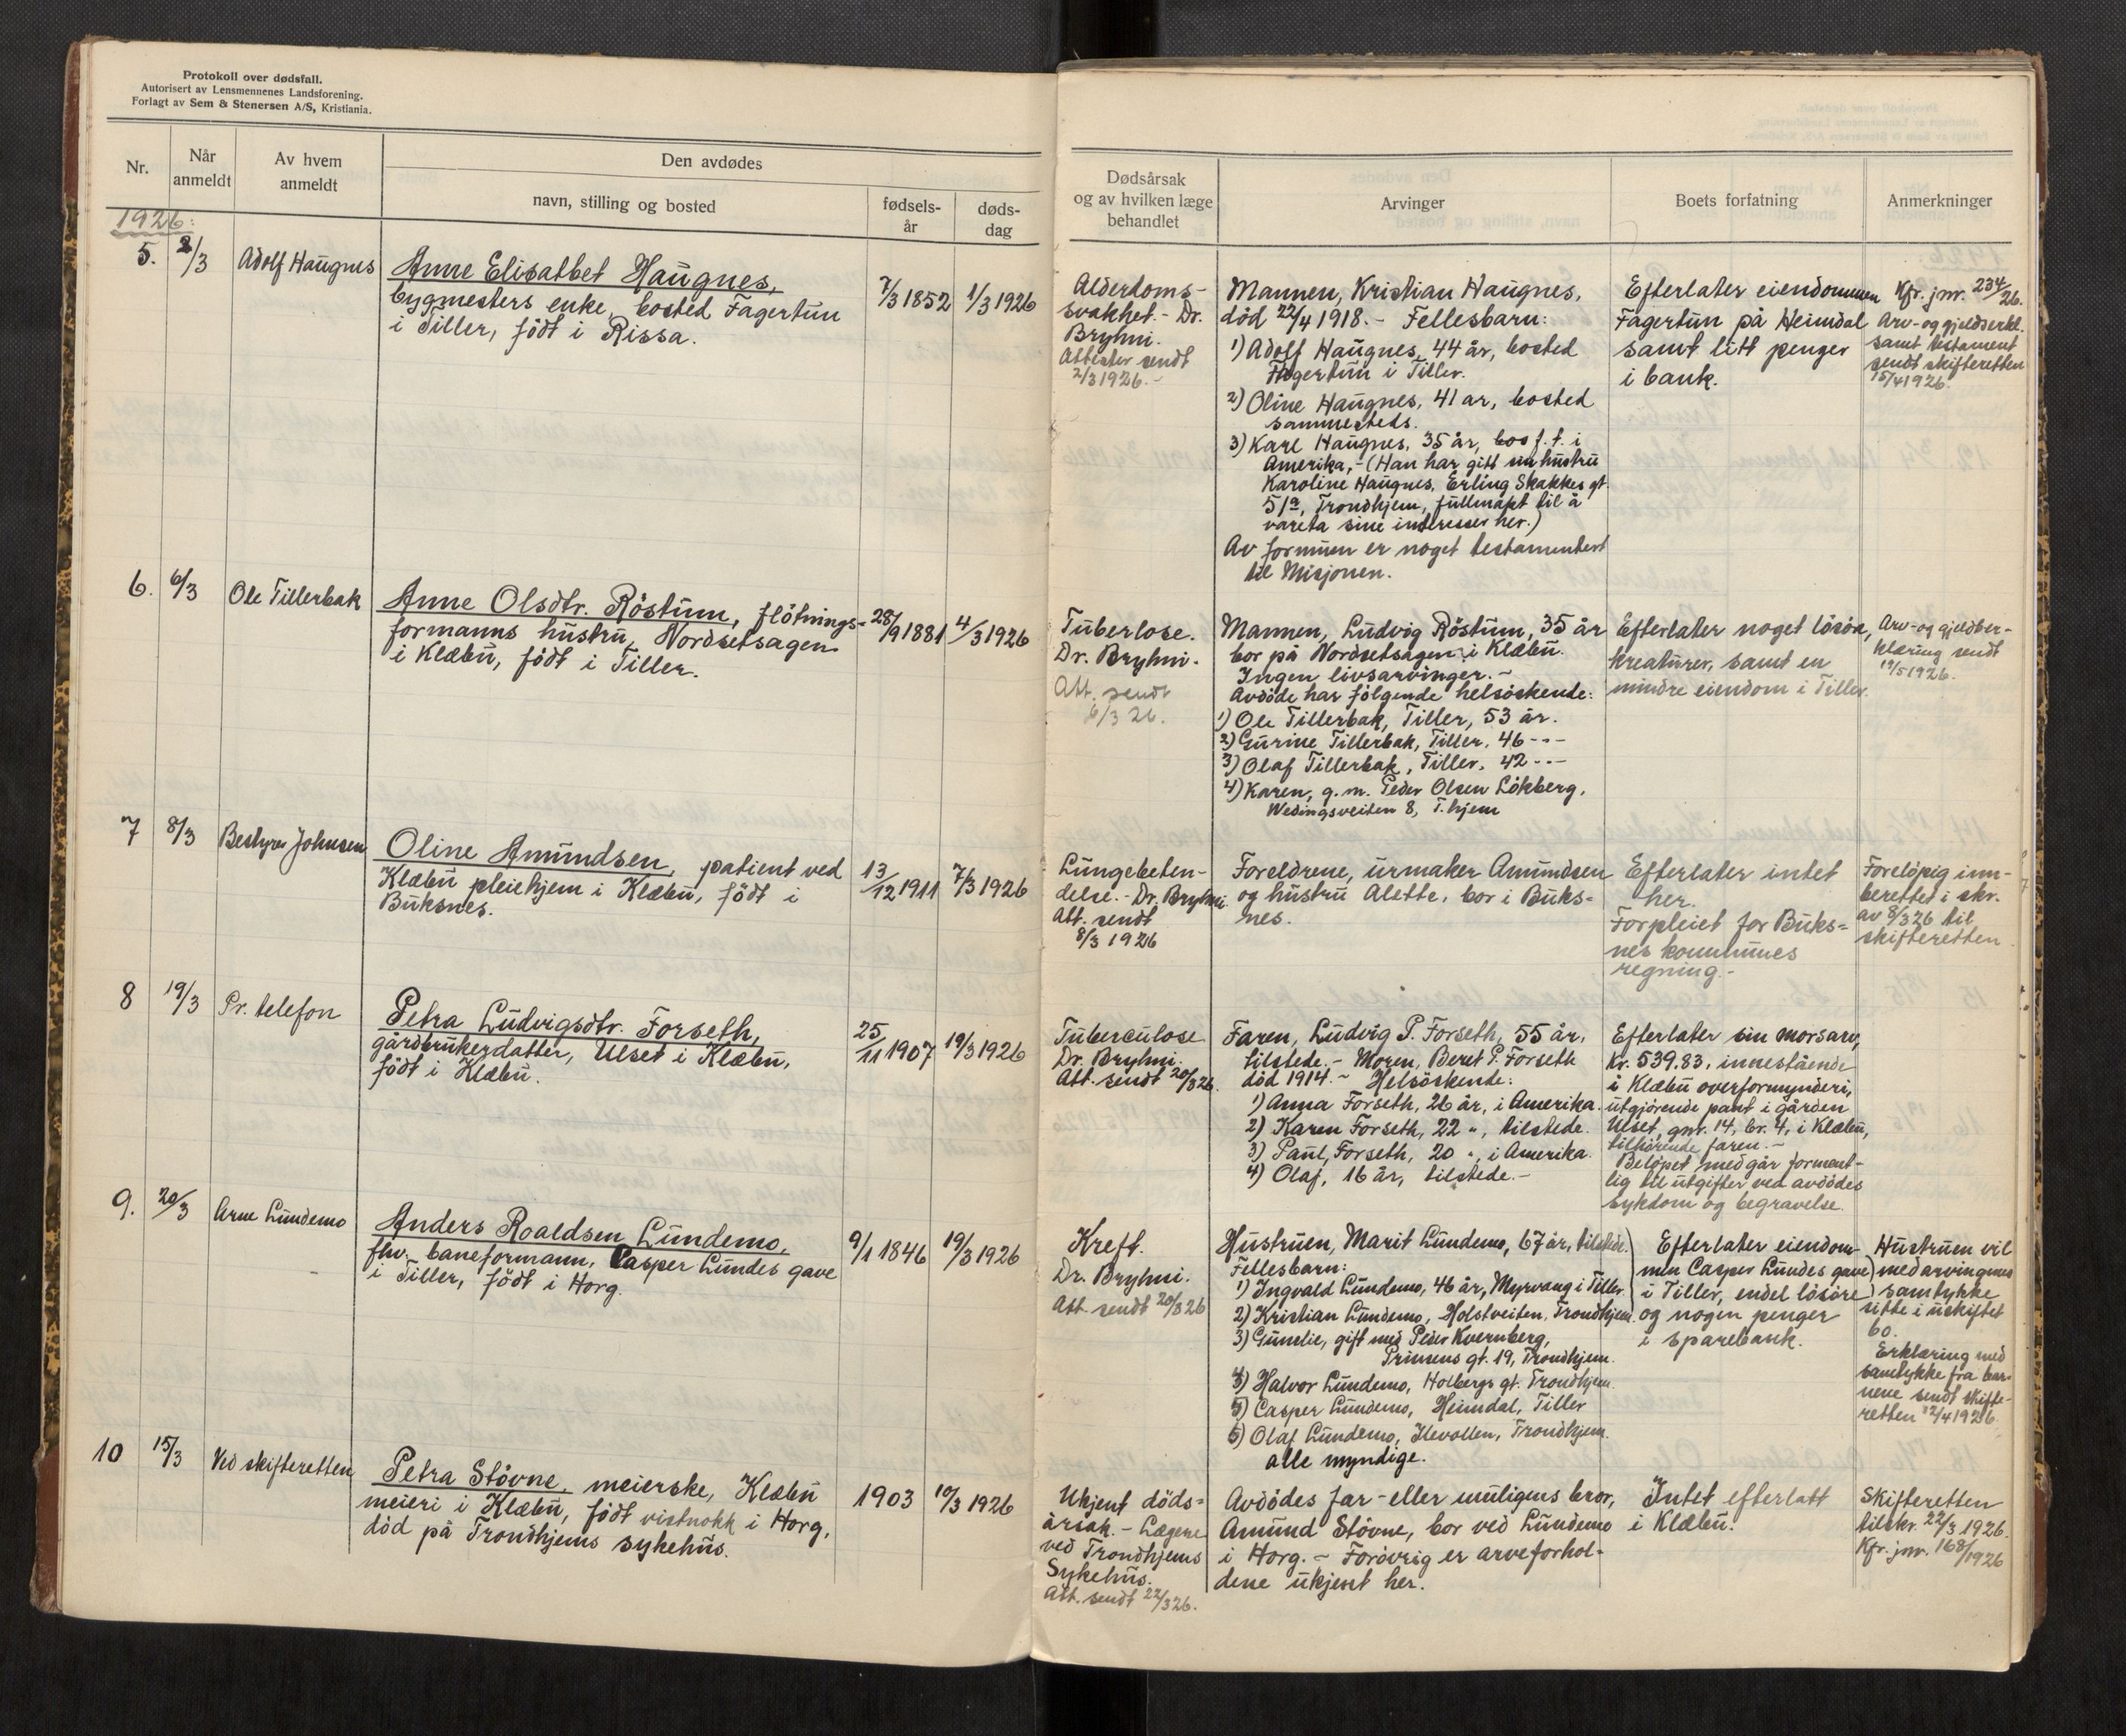 Protokoll over dødsfall.
Autorisert av Lensmennenes Landsforening.
Forlagt av Sem & Stenersen A/S, Kristiania.
Nr.
Når
anmeldt
Av hvem
anmeldt
Den avdødes
navn, stilling og bosted
fødsels-
år
døds-
dag
Dødsårsak
og av hvilken læge
behandlet
Arvinger
Boets forfatning
Anmerkninger
1926:
5.
2/3
Adolf Haugnes
Anne Elisabet Haugnes,
bygmesters enke, bosted Fagertun
i Tiller, födt i Rissa.
7/3 1852
1/3 1926
Alderdoms-
svakhet. - Dr.
Bryhni.
Attester sendt
2/3 1926. -
Mannen, Kristian Haugnes,
död 22/4 1918. - Fellesbarn:
1) Adolf Haugnes, 44 år, bosted
Fagertun i Tiller.
2) Oline Haugnes, 41 år, bosted
sammesteds.
3) Karl Haugnes, 35 år, bos. f. t. i
Amerika, - (Han har gitt sin hustru
Karoline Haugnes, Erling Skakkes gt.
51a, Trondhjem, fullmakt til å
vareta sine interesser her.)
Av formuen er noget testamentert
til Misjonen.
Efterlater eiendommen
Fagertun på Heimdal
samt litt penger
i bank.
Kfr. jnr. 234/26.
Arv- og gjeldserkl.
samt testament
sendt skifteretten
15/4 1926.
6.
6/3
Ole Tillerbak
Anne Olsdtr. Röstum, flötnings-
formanns hustru, Nordsetsagen
i Klæbu, födt i Tiller.
28/9 1881
4/3 1926
Tuberlose.
Dr. Bryhni.
Att. sendt
6/3 26.
Mannen, Ludvig Röstum, 35 år
bor på Nordsetsagen i Klæbu.
Ingen livsarvinger. -
Avdöde har fölgende helsöskende:
1) Ole Tillerbak, Tiller, 53 år.
2) Gurine Tillerbak, Tiller, 46 -"-
3) Olaf Tillerbak, Tiller, 42 -"-
4) Karen, g. m. Peder Olsen Lökberg,
Wedingsveiten 8, T.hjem
Efterlater noget lösöre,
kreaturer, samt en
mindre eiendom i Tiller.
Arv- og gjeldser-
klæring sendt
19/5 1926.
7
8/3
Bestyrer Johnsen
Oline Amundsen, patient ved
Klæbu pleiehjem i Klæbu, födt i
Buksnes.
13/12 1911
7/3 1926
Lungebeten-
delse. - Dr. Bryhni
Att. sendt
8/3 1926
Foreldrene, urmaker Amundsen
og hustru Alette, bor i Buks=
nes.
Efterlater intet
her.
Forpleiet for Buks=
nes kommunes
regning. -
Foreløpig inn-
berettet i skr.
av 8/3 26 til
skifteretten
8
19/3
Pr. telefon
Petra Ludvigsdtr. Forseth,
gårdbrukerdatter, Ulset i Klæbu,
födt i Klæbu.
25/11 1907
19/3 1926
Tuberculose
Dr. Bryhni.
Att. sendt 20/3 26.
Faren, Ludvig P. Forseth, 55 år,
tilstede. - Moren, Beret P. Forseth
död 1914. - Helsöskende:
1) Anna Forseth, 26 år, i Amerika.
2) Karen Forseth, 22 ", tilstede.
3) Paul, Forseth, 20 ", i Amerika.
4) Olaf, 16 år, tilstede. -
Efterlater sin morsarv,
kr. 539.83, innestående
i Klæbu overformynderi,
utgjörende pant i gården
Ulset, gnr. 14, br. 4, i Klæbu,
tilhörende faren. -
Belöpet medgår forment-
lig til utgifter ved avdödes
sykdom og begravelse.
9.
20/3
Arne Lundemo
Anders Roaldsen Lundemo,
fhv. baneformann, Casper Lundes gave
i Tiller, födt i Horg.
9/1 1846
19/3 1926
Kreft.
Dr. Bryhni.
Att. sendt 20/3 26
Hustruen, Marit Lundemo, 67 år, tilstede.
Fellesbarn:
1) Ingvald Lundemo, 46 år, Myrvang i Tiller
2) Kristian Lundemo, Holstveiten, Trondhjem.
3) Gunelie, gift med Peder Kvernberg,
Prinsens gt. 19, Trondhjem.
3) Halvor Lundemo, Holbergs gt. Trondhjem
5) Casper Lundemo, Heimdal, Tiller
6) Olaf Lundemo, Ilevollen, Trondhjem.
alle myndige.
Efterlater eiendom-
men Casper Lundes gave
i Tiller, endel lösöre
og nogen penger
i sparebank.
Hustruen vil
med arvingenes
samtykke
sitte i uskiftet
bo.
Erklæring med
samtykke fra bar-
nene sendt skifte-
retten 12/4 1926.
10
15/3
Ved skifteretten
Petra Stövne, meierske, Klæbu
meieri i Klæbu, födt vistnokk i Horg,
död på Trondhjems sykehus.
1903
10/3 1926
Ukjent döds=
årsak. - Lægene
ved Trondhjems
Sykehus.
Att. sendt 22/3 26.
Avdödes far - eller muligens bror,
Amund Stövne, bor ved Lundemo
i Horg. - Foröverig er arveforhol-
dene ukjent her.
Intet efterlatt
i Klæbu.
Skifteretten
tilskr. 22/3 1926.
Kfr. jnr. 168/1926